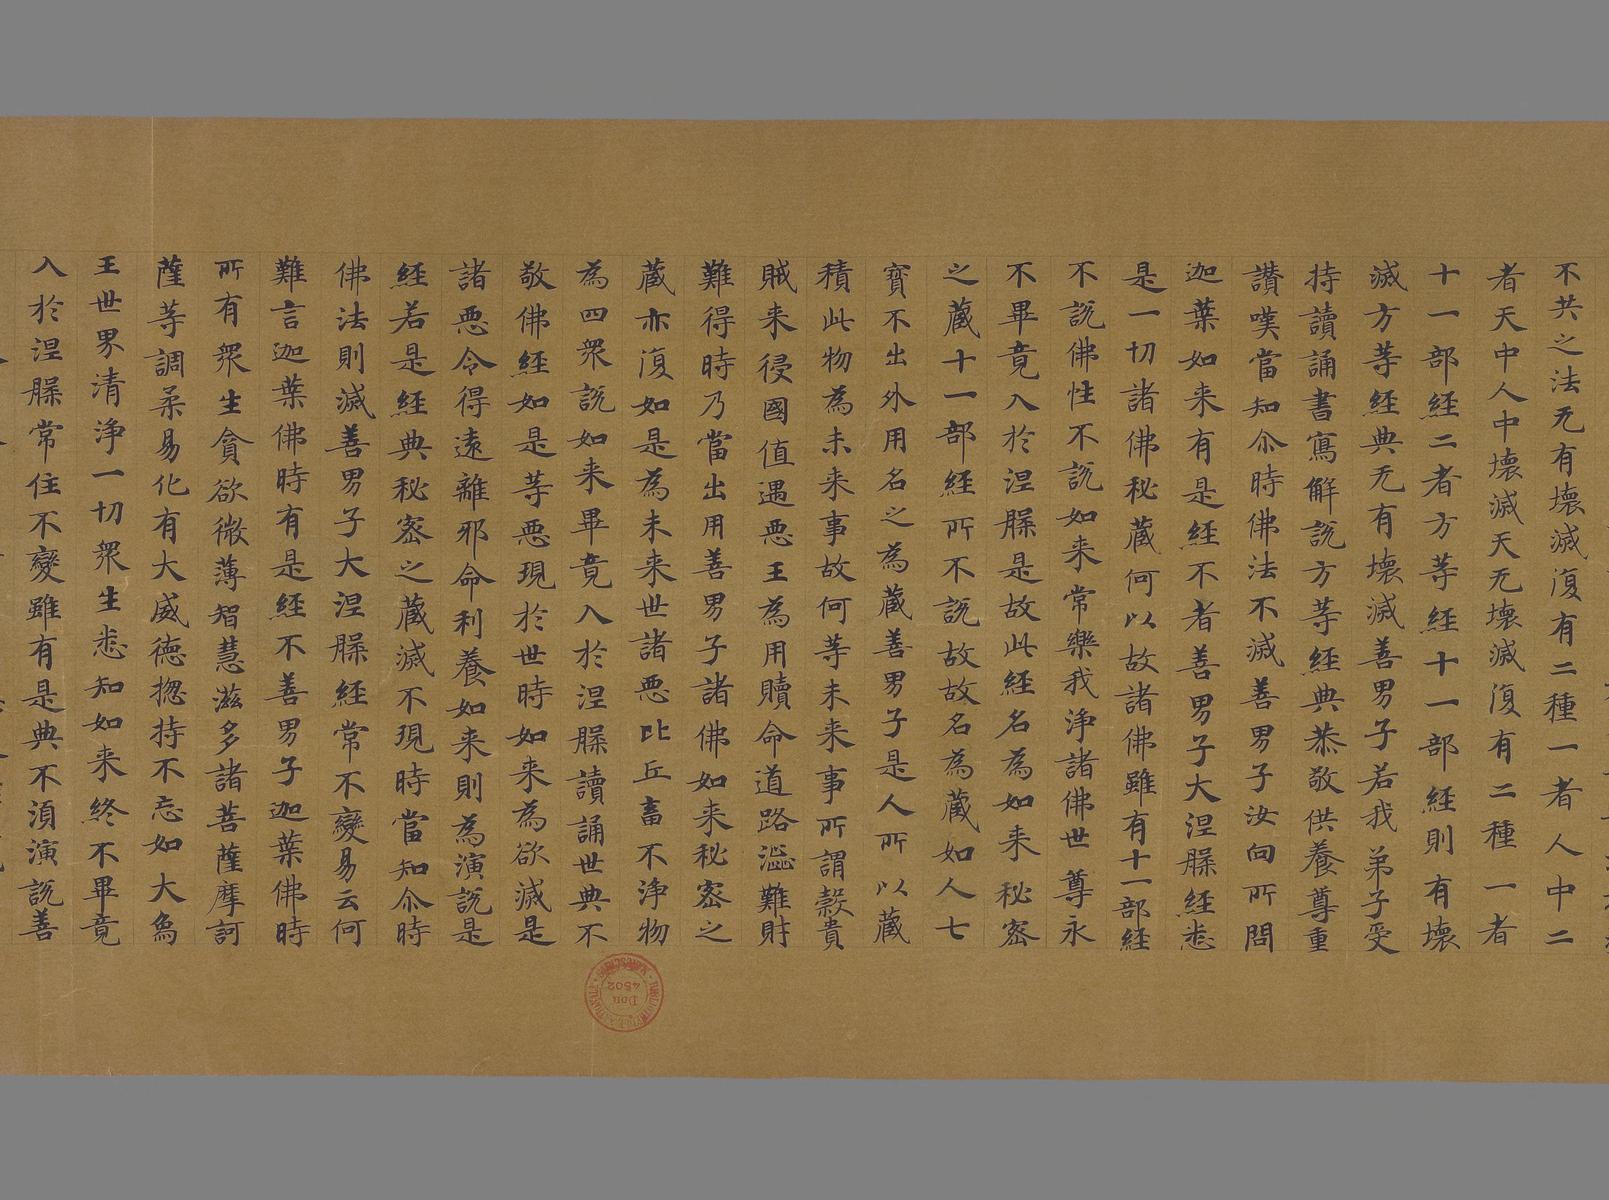 不共之法无有壞滅復有二種一者人中二
者天中人中壞滅天无壞滅復有二種一者
十一部經二者方等經十一部經則有壞
滅方等經典无有壞滅善男子若我弟子受
持讀誦書寫解說方等經典恭敬供養尊重
讚嘆當知尒時佛法不滅善男子汝向所問
迦葉如来有是經不者善男子大涅槃經悉
是一切諸佛秘蔵何以故諸佛雖有十一部經
不說佛性不說如来常樂我淨諸佛世尊永
不畢竟入於涅槃是故此經名為如来秘密
之蔵十一部經所不說故故名為蔵如人七
寳不出外用名之為蔵善男子是人所以蔵
積此物為未来事故何等未来事所謂穀貴
賊来侵國值遇惡王為用贖命道路澁難財
難得時乃當出用善男子諸佛如来秘密之
蔵亦復如是為未来世諸惡比丘畜不淨物
為四衆說如来畢竟入於涅槃讀誦世典不
敬佛經如是等惡現於世時如来為欲滅是
諸惡令得遠離邪命利養如来則為演說是
經若是經典秘密之蔵滅不現時當知尒時
佛法則滅善男子大涅槃經常不變易云何
難言迦葉佛時有是經不善男子迦葉佛時
所有衆生貪欲微薄智慧滋多諸菩薩摩訶
薩等調柔易化有大威德揔持不忘如大鳥
王世界清淨一切衆生悉知如来終不畢竟
入於涅槃常住不變雖有是典不湏演說善
Don
4502